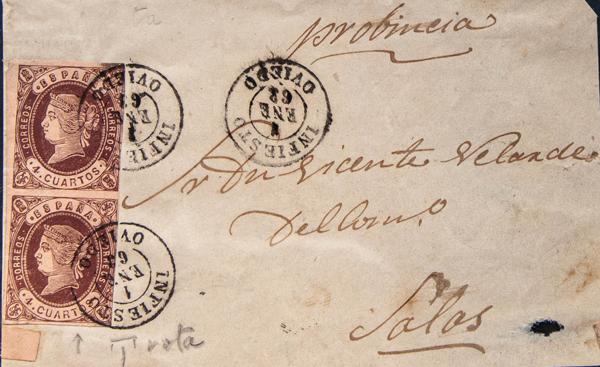 provincia
ESPAÑA
CORREOS
CORREOS
4. CUARTOS.
ESPAÑA
CORREOS
CORREOS
4. CUARTOS
INFIESTO
1
ENE
62
OVIEDO
INFIESTO
1
ENE
62
OVIEDO
INFIESTO
1
ENE
6
OVIEDO
Sr Dn Vicente Velarde
Del Como
Salas
rota